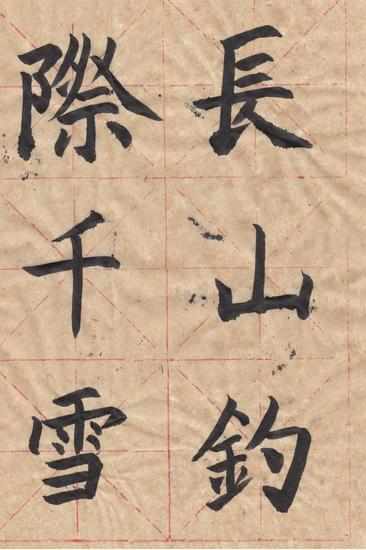 長山釣
際千雪